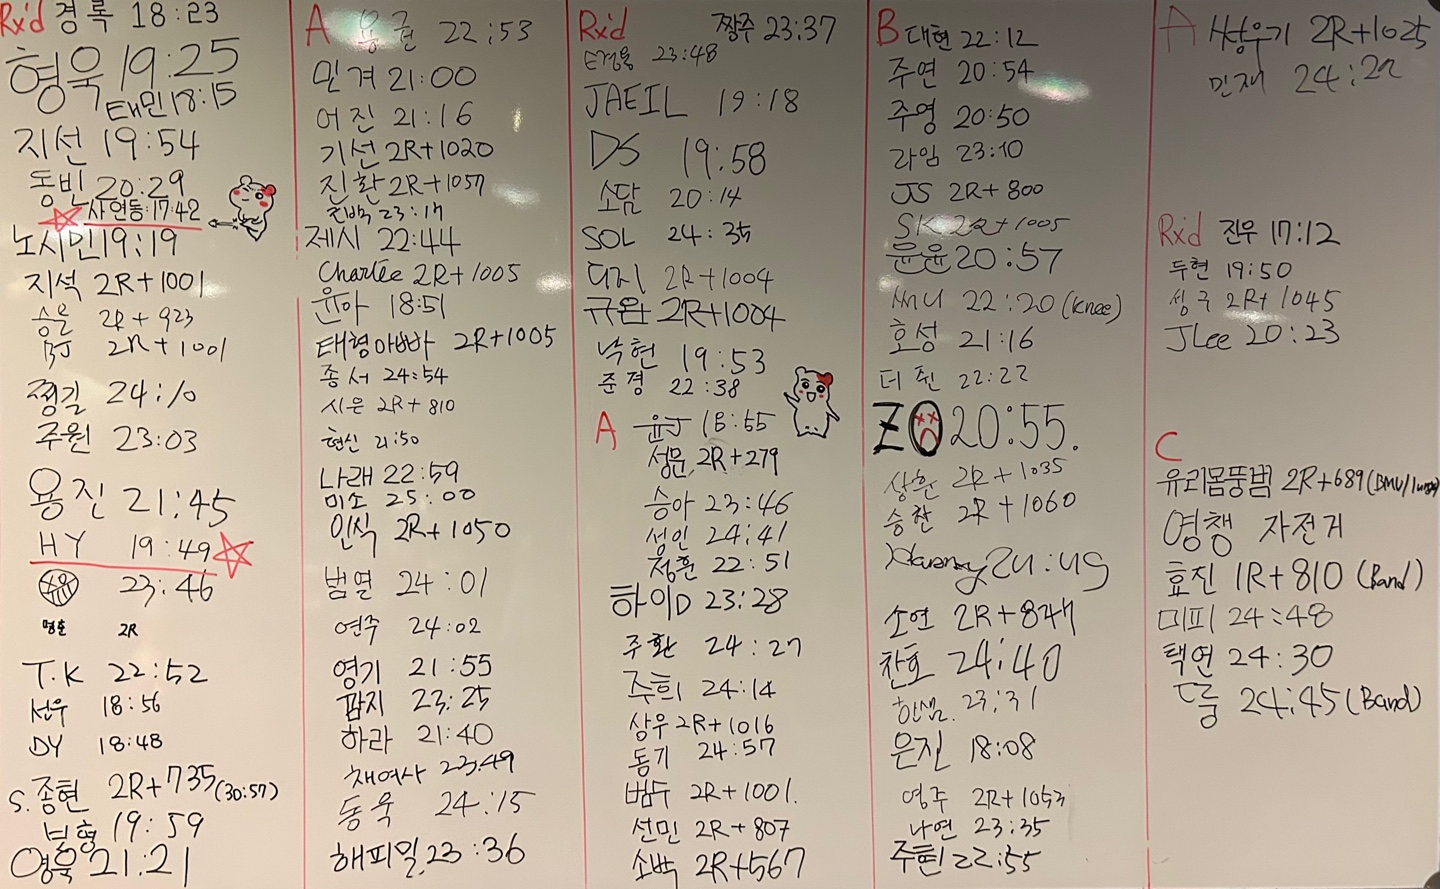 Rx'd 경록 18:23
형욱 19:25
태민 18:15
지선 19:54
동빈 20:29
사연동 17:42
노시민 19:19
지석 2R+1001
승윤 2R+923
BJ 2R+1001
쩡길 24:10
주원 23:03
용진 21:45
HY 19:49
23:46
명훈 2R
T.K 22:52
선우 18:56
DY 18:48
S.종현 2R+735(30:57)
본형 19:59
영욱 21:21
A 용권 22:53
민겨 21:00
어진 21:16
기선 2R+1020
진환 2R+1057
23:17
제시 22:44
Charlee 2R+1005
윤아 18:51
태형아빠 2R+1005
종서 24:54
시은 2R+810
현신 21:50
나래 22:59
미소 25:00
인식 2R+1050
범열 24:01
연주 24:02
영기 21:55
팜지 23:25
하라 21:40
채여사 23:49
동욱 24:15
해피밀 23:36
Rx'd 짱주 23:37
23:48
JAEIL 19:18
DS 19:58
소담 20:14
SOL 24:35
디지 2R+1004
규완 2R+1004
낙현 19:53
준경 22:38
A 윤J 18:55
성문 2R+279
승아 23:46
성인 24:41
정훈 22:51
하이D 23:28
주환 24:27
주희 24:14
상우 2R+1016
동기 24:57
범수 2R+1001.
선민 2R+807
소백 2R+567
B 대현 22:12
주연 20:54
주영 20:50
라임 23:10
JS 2R+800
SK 2R+1005
륜윤 20:57
써니 22:20 (knee)
호성 21:16
더 퀸 22:22
ZO 20:55.
상훈 2R+1035
승찬 2R+1060
소연 2R+847
찬호 24:40
한샘. 23:31
은진 18:08
영주 2R+1053
나연 23:35
주현 22:55
A 쌍우기 2R+1025
민재 24:22
Rx'd 진우 17:12
두현 19:50
성구 2R+1045
JLee 20:23
C
유리몸뚱범 2R+689(BMU/lunge)
영챙 자전거
효진 1R+810 (Band)
미피 24:48
택연 24:30
두룽 24:45 (Band)